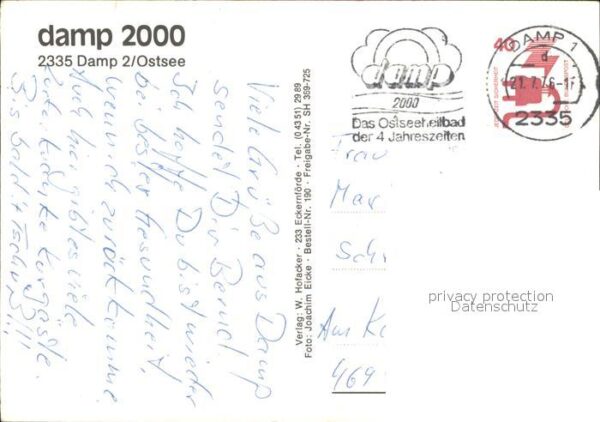 damp 2000
2335 Damp 2/Ostsee
Viele Grüße aus Damp
sendet Dir Bernd.
Ich hoffe Du bist wieder
bei bester Gesundheit,
wenn ich zurückkomme
Auch hier gibt es viele
kranke Kurgäste.
Bis bald! Tschüß!!!
Verlag: W. Hofacker · 233 Eckernförde · Tel. (0 43 51) 29 89
Foto: Joachim Eicke · Bestell-Nr. 190 · Freigabe-Nr. SH 939-725
damp
2000
Das Ostseeheilbad
der 4 Jahreszeiten
40
DAMP 1
d
21.7.76
2335
Frau
Mar
Sch
Am K
469
privacy protection
Datenschutz